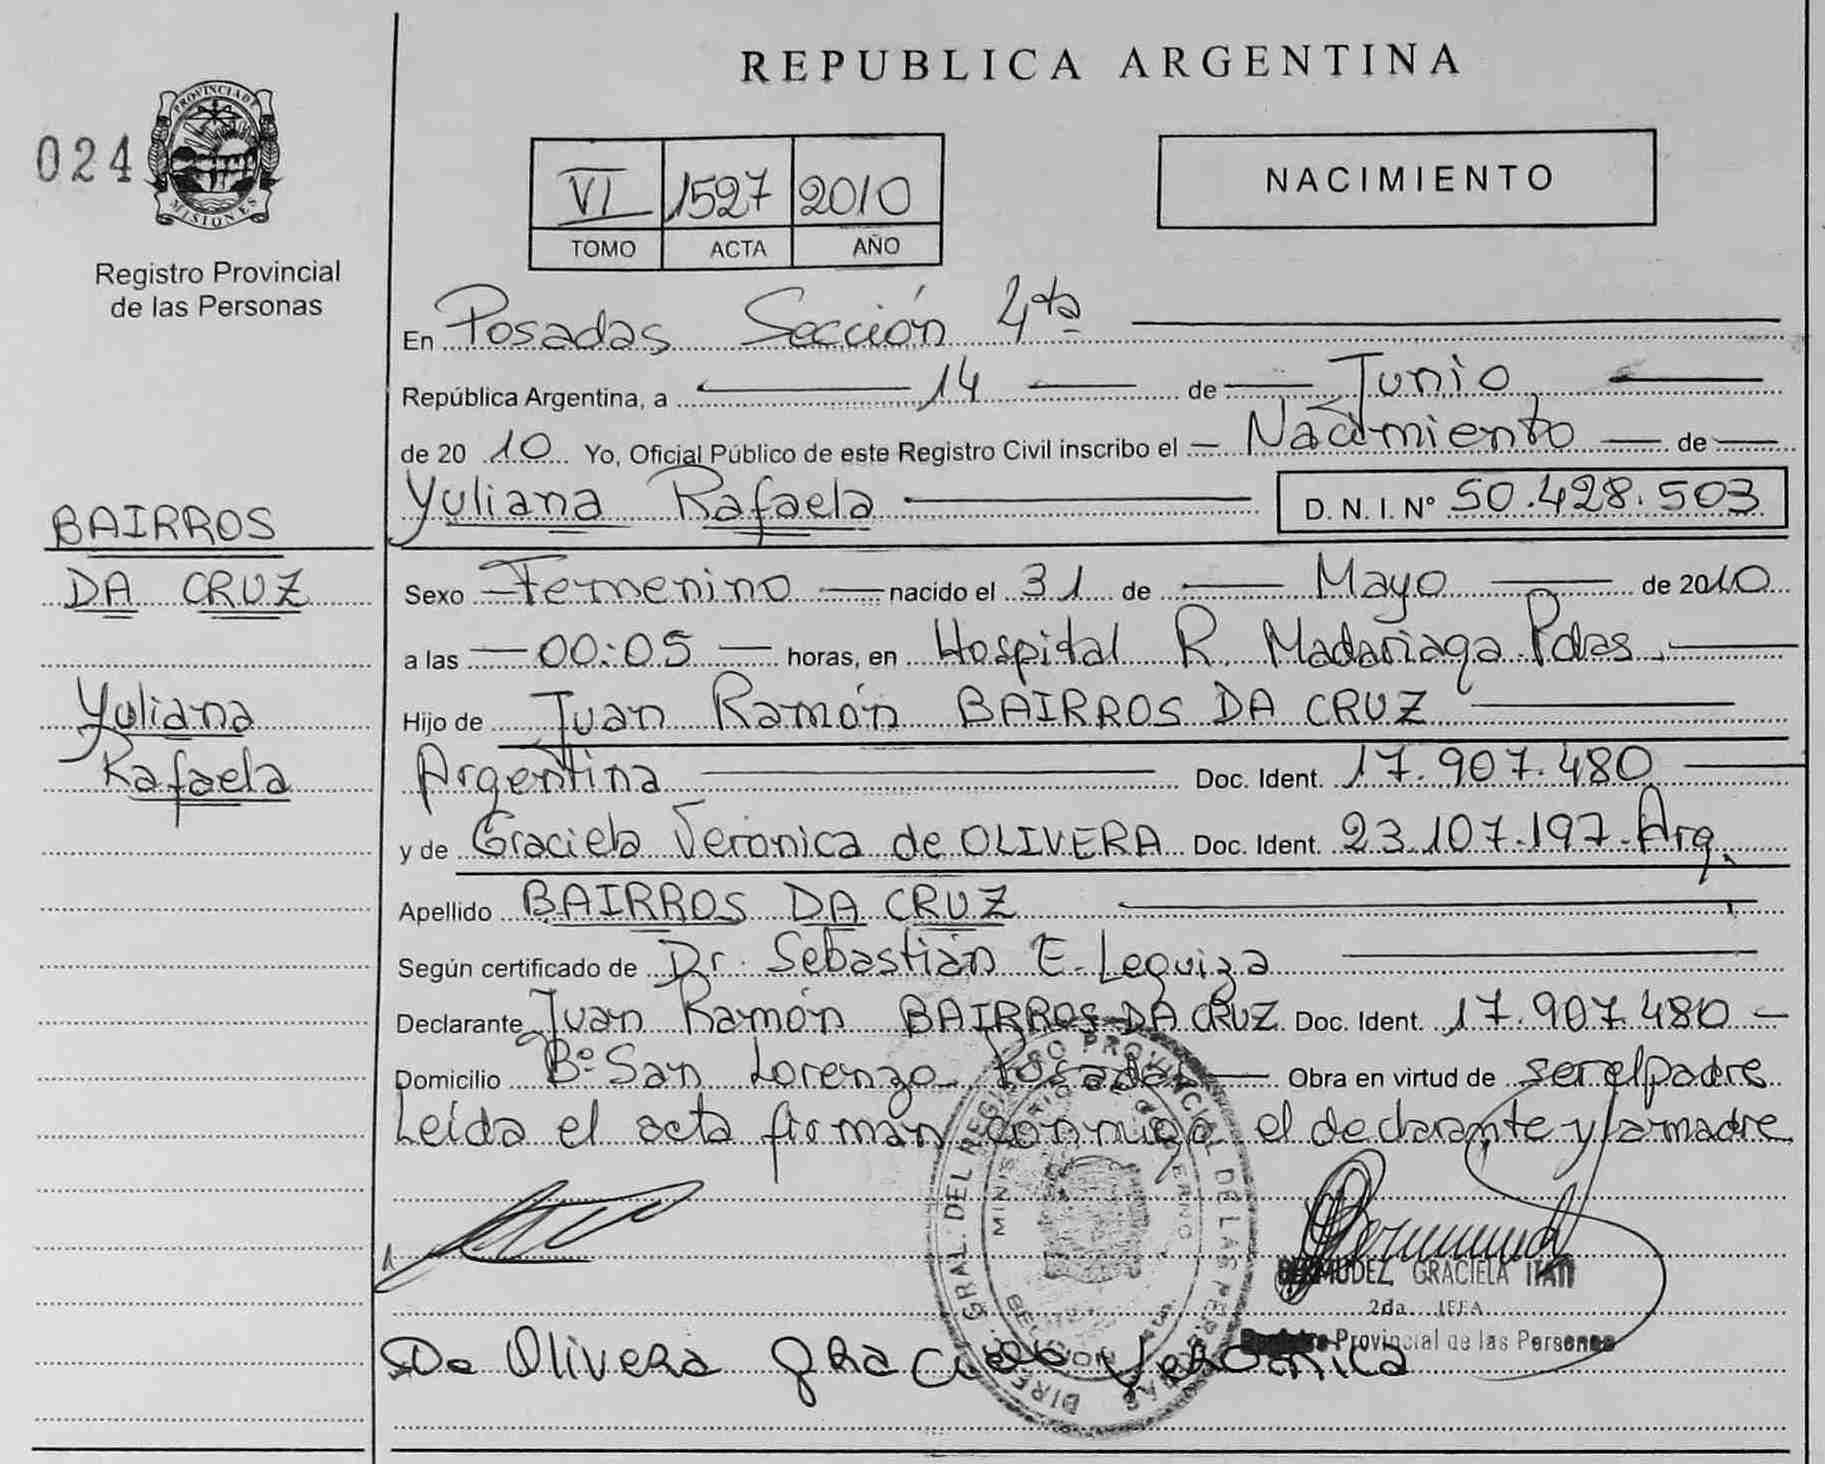 REPUBLICA ARGENTINA
024
PROVINCIA DE
MISIONES
Registro Provincial
de las Personas
VI 1527 2010
TOMO ACTA AÑO
NACIMIENTO
En Posadas Sección 4ta
República Argentina, a 14 de Junio
de 2010 Yo, Oficial Público de este Registro Civil inscribo el Nacimiento de
Yuliana Rafaela D. N. I. Nº 50.428.503
BAIRROS
DA CRUZ
Yuliana
Rafaela
Sexo Femenino nacido el 31 de Mayo de 2010
a las 00:05 horas, en Hospital R. Madariaga Pdas
Hijo de Juan Ramón BAIRROS DA CRUZ
Argentina Doc. Ident. 17.907.480
y de Graciela Veronica de OLIVERA Doc. Ident. 23.107.197 Arg.
Apellido BAIRROS DA CRUZ
Según certificado de Dr. Sebastián E. Leguiza
Declarante Juan Ramón BAIRROS DA CRUZ Doc. Ident. 17.907.480
Domicilio Bº San Lorenzo Posadas Obra en virtud de ser el padre
Leída el acta firman conmigo el declarante y la madre
BERMUDEZ, GRACIELA
2da JEFA
Provincial de las Personas
De Olivera Graciela Veronica